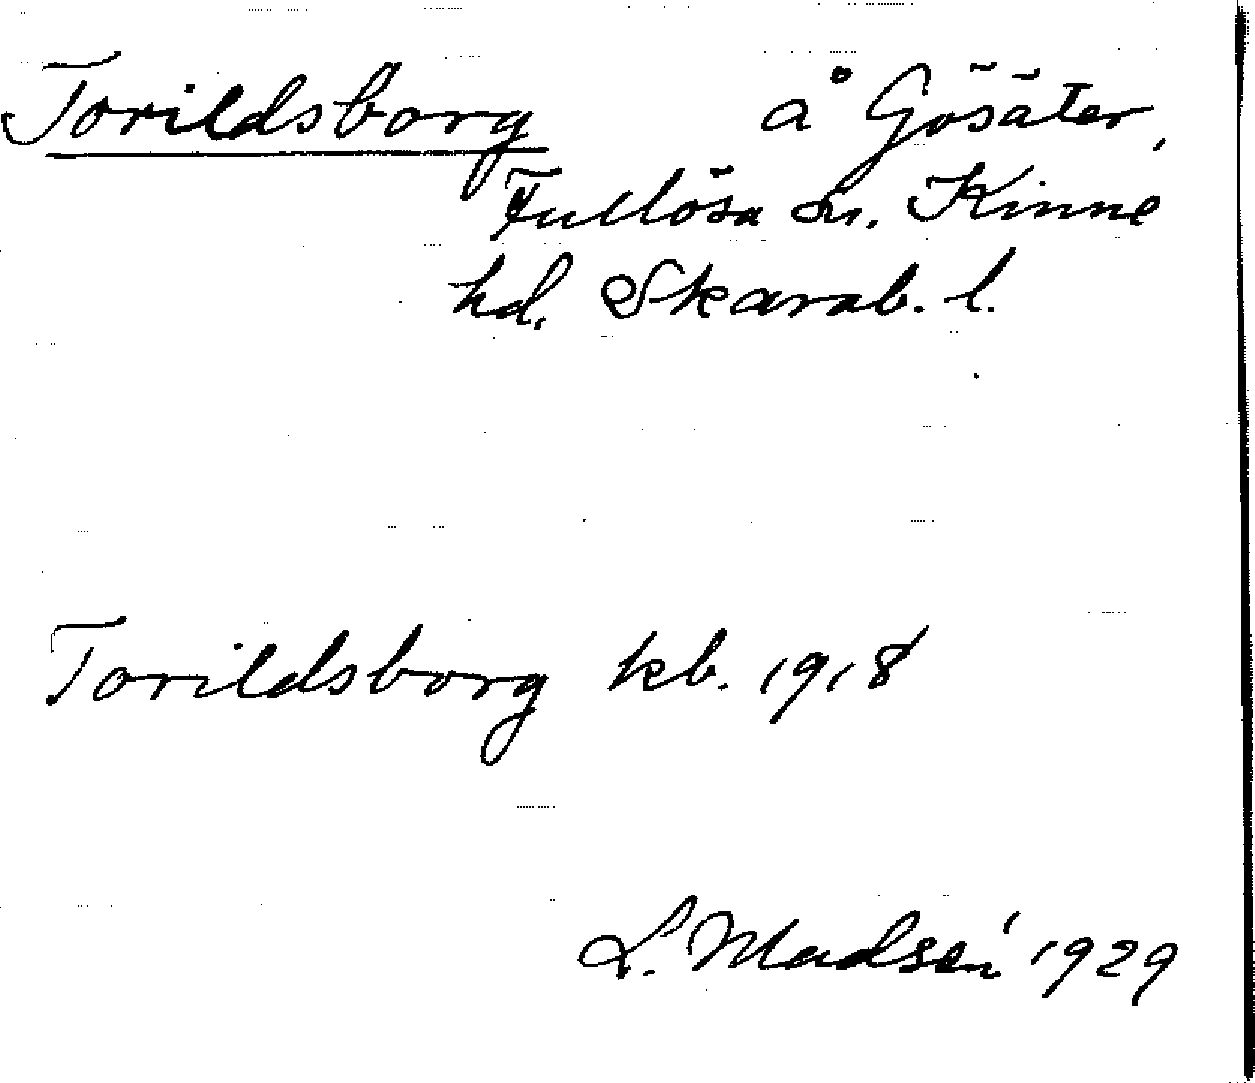 Torildsborg å Gösäter,
Fullösa sn. Kinne
hd. Skarab. l.
Torildsborg kb. 1918
L. Madsén 1929